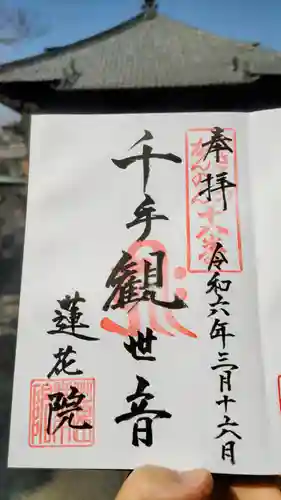 奉拝
令和六年三月十六日
千手観世音
蓮花院